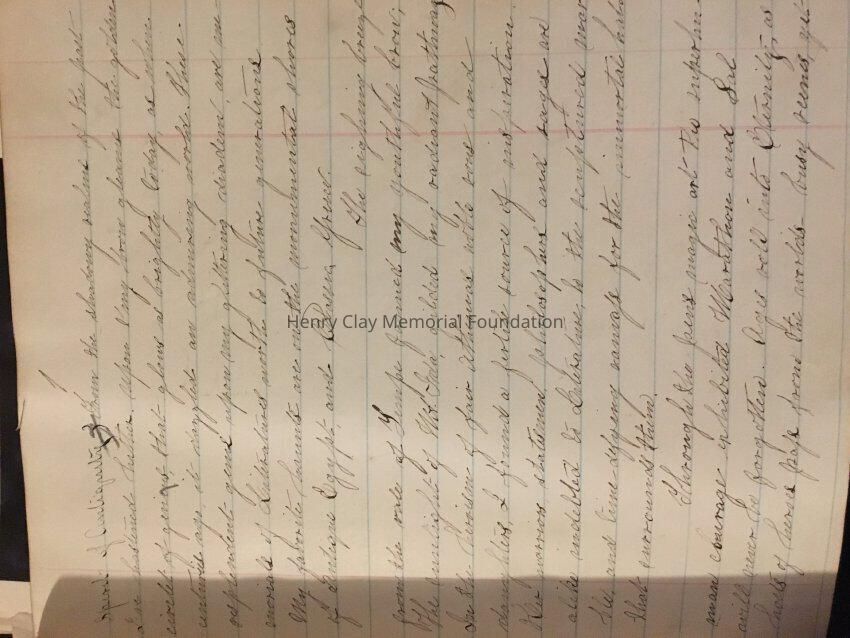 Spirit of Antiquity From the shadowy realms of the past
I've hastened hither. Upon my brow gleams the golden
circlet of genius, that glows as brightly today, as when
centuries ago it dazzled an admiring world. Thine
resplendent gems upon my glittering diadem, are me-
morials of Literatures worth to future generations
My favorite haunts are on the monumental shores
of antique Egypt, and Greece.
The zephyrs
from the vale of Tempe fanned my youthful brow,
The sunlight of gilded my radiant pathway
In the heroism of fair Athenias noble sons and
daughters, I found a fertile source of inspiration.
Her warriors statesmen, philosophers and sages are
alike indebted to Literature, for the sculptured mar-
ble and time defying canvass for the immortal halo
that surrounds them.
Through the pens magic art the superhu-
man courage exhibited Marathon and Sal
will never be forgotten. Ages roll into Eternity, as
hosts of heroes pass from the worlds busy scenes, yet
Henry Clay Memorial Foundation